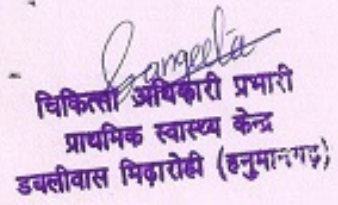 Sangeeta
चिकित्सा अधिकारी प्रभारी
प्राथमिक स्वास्थ्य केन्द्र
डबलीवास मिढ़ारोही (हनुमानगढ़)